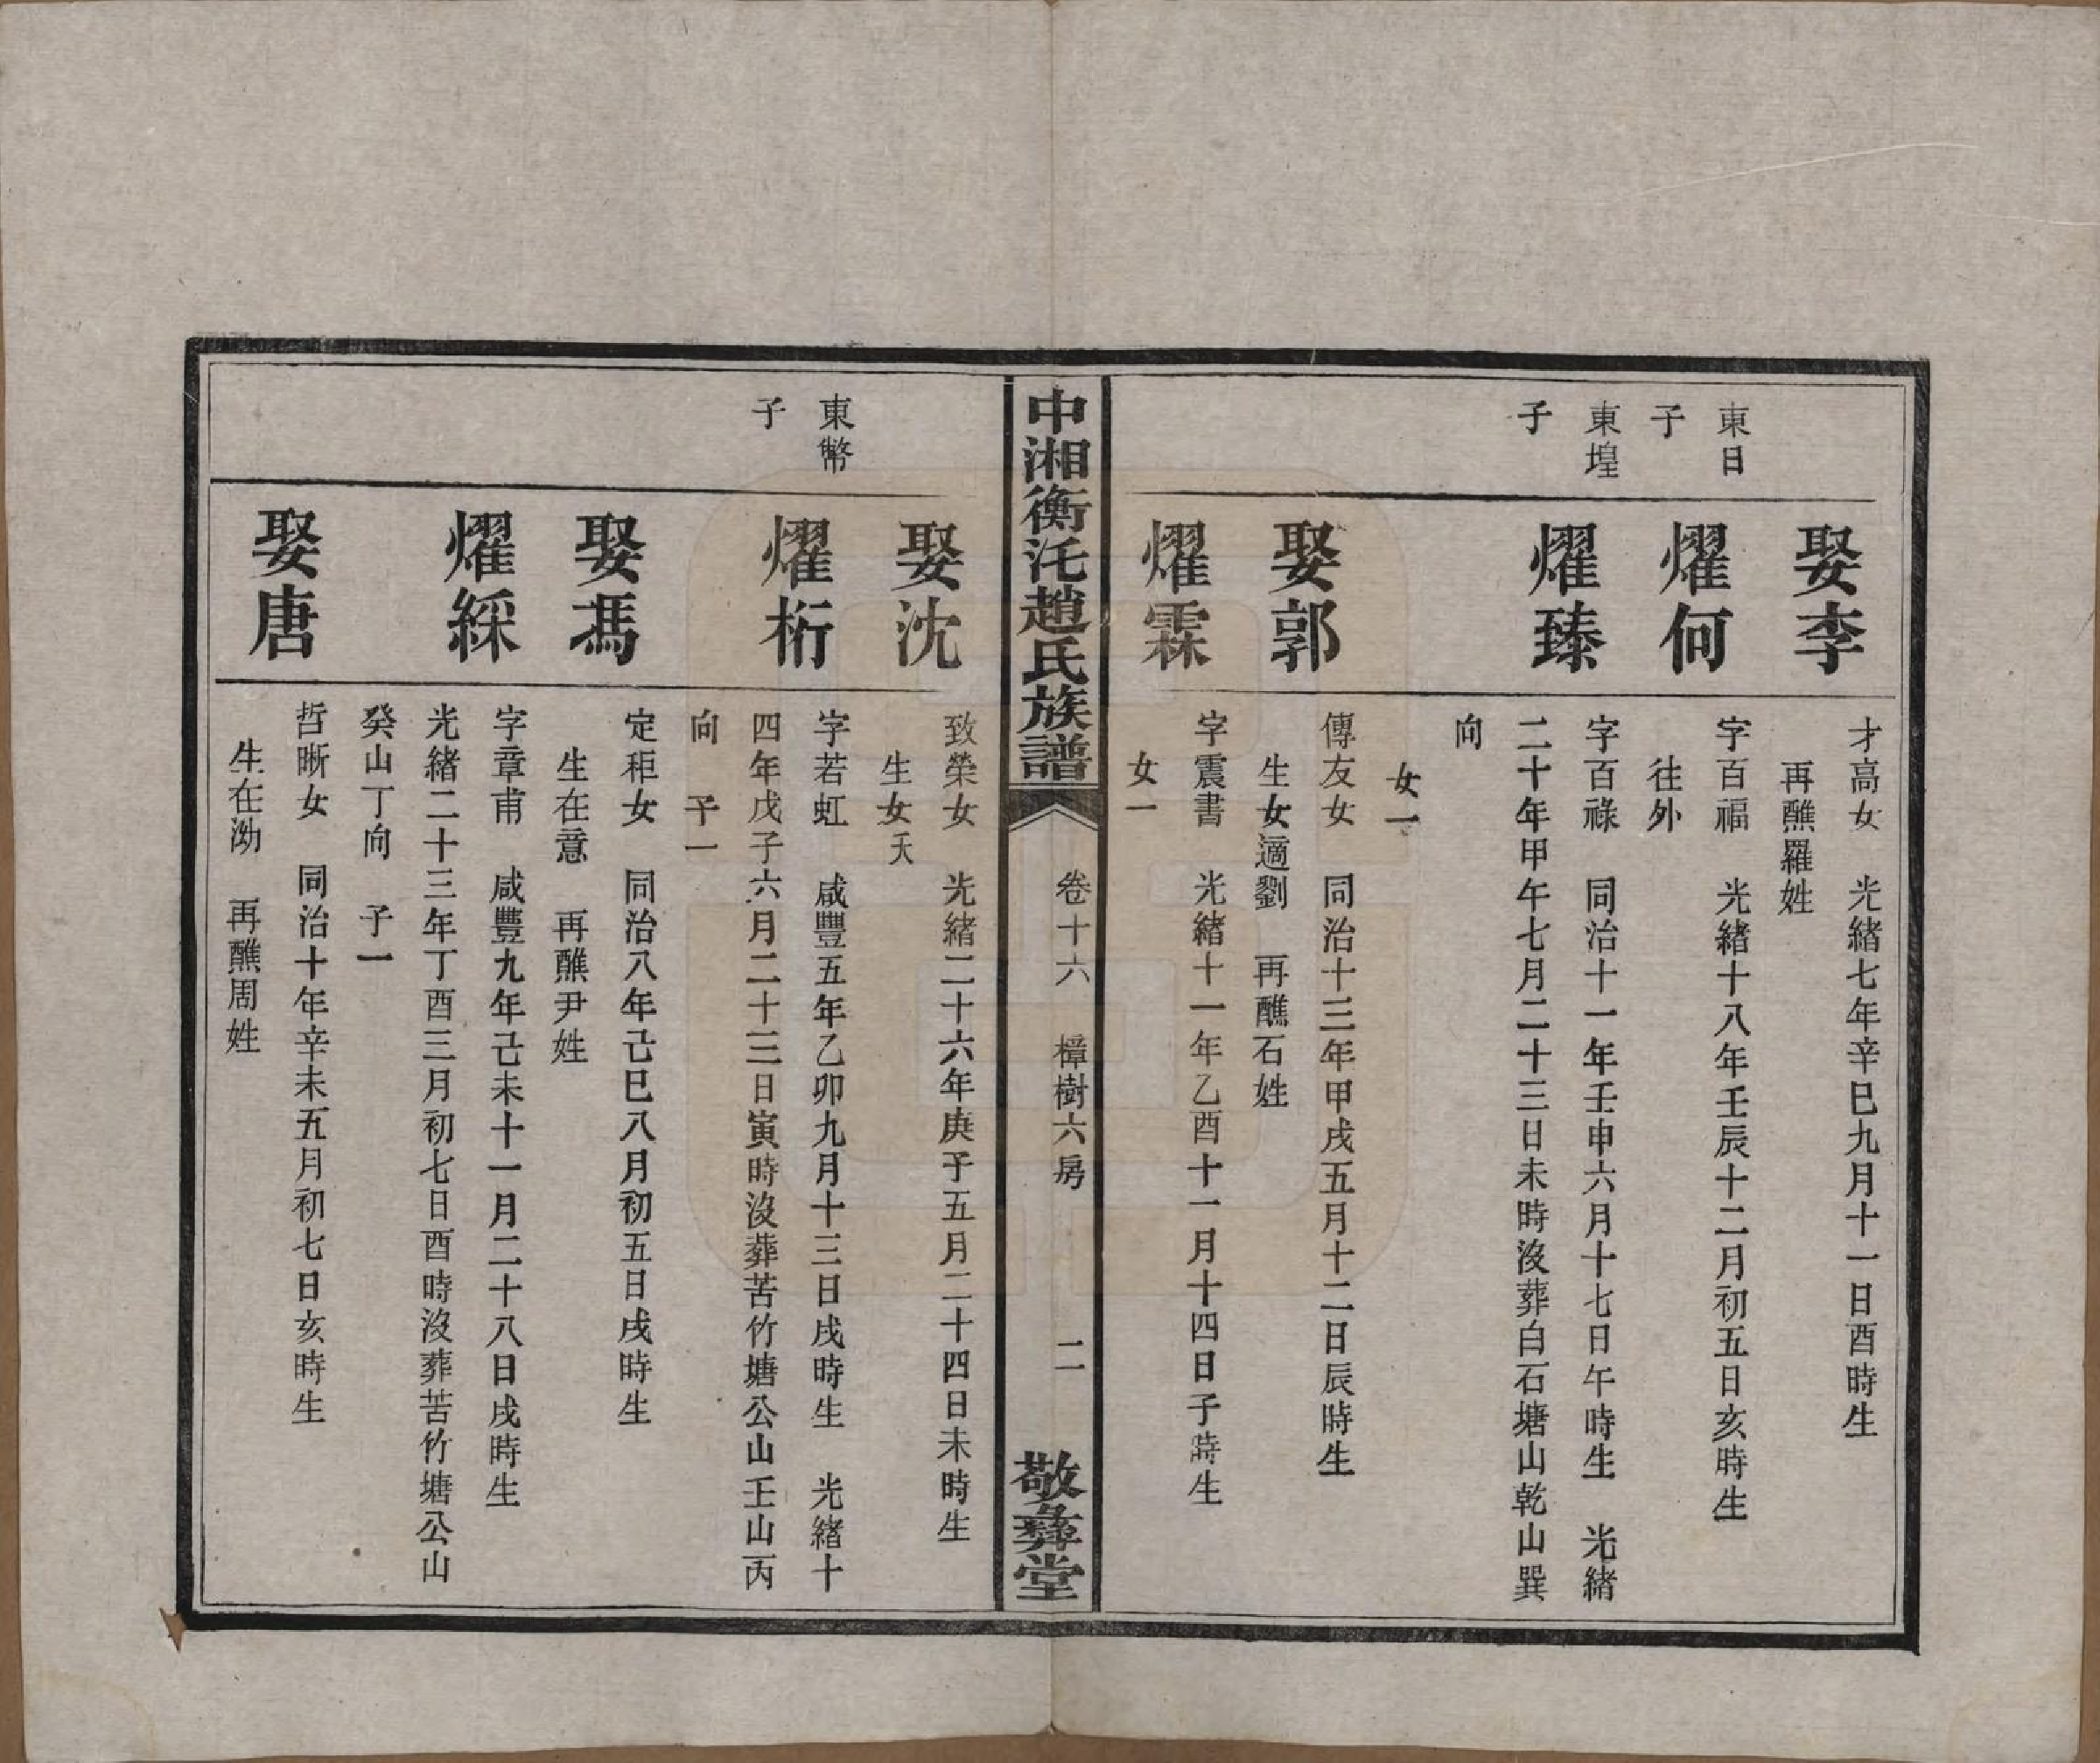 娶李
才高女　光緒七年辛巳九月十一日酉時生
再醮羅姓
東日
子
燿何
字百福　光緒十八年壬辰十二月初五日亥時生
往外
東堭
子
燿臻
字百祿　同治十一年壬申六月十七日午時生　光緒
二十年甲午七月二十三日未時沒葬白石塘山乾山巽
向
女一
娶郭
傳友女　同治十三年甲戌五月十二日辰時生
生女適劉　再醮石姓
燿霖
字震書　光緒十一年乙酉十一月十四日子時生
女一
中湘衡汑趙氏族譜
卷十六　樟樹六房
二
敬彝堂
娶沈
致榮女　光緒二十六年庚子五月二十四日未時生
生女夭
東幣
子
燿桁
字若虹　咸豐五年乙卯九月十三日戌時生　光緒十
四年戊子六月二十三日寅時沒葬苦竹塘公山壬山丙
向　子一
娶馮
定秬女　同治八年己巳八月初五日戌時生
生在意　再醮尹姓
燿綵
字章甫　咸豐九年己未十一月二十八日戌時生
光緒二十三年丁酉三月初七日酉時沒葬苦竹塘公山
癸山丁向　子一
娶唐
哲晰女　同治十年辛未五月初七日亥時生
生在泑　再醮周姓